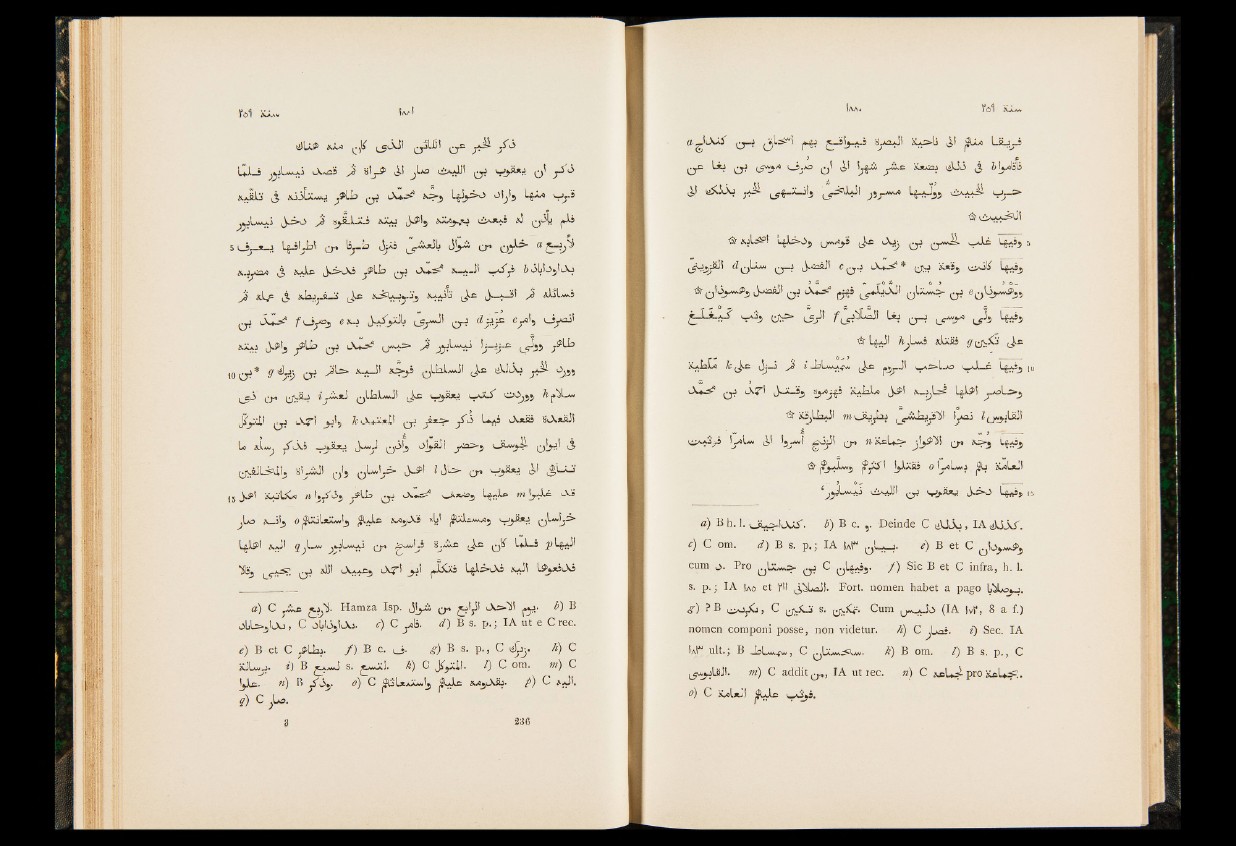 سنة ٢٥٩ ١٨٨٠
فريقا منهم الى ناحية البصرة فيواقع بهم اسحاق بن كنداج a
فأقاموا b فى ذلك بضعة عشر شهرا الى ان صُرف موسى بن بغا عن
حرب الخبيث ووُلّيها مسرور البلخىّ وانتهى الخبر بذلك الى
الخبيث ۞
5 وفيها غلب الحسن بن زيد على قومس ودخلها اصحابه ۞
وفيها كانت وقعة بين *محمّد بن c الفضل بن سنان d القزوينىّ
ووَهْسُوذان e بن جُسْتان الدَّيْلَمىّ فهزم محمَّدُ بن الفضل وهسوذان ۞
وفيها ولّى موسى بن بغا الصَّلابىّ f الرىّ حين وثب كَيْغَلَغ
على تكين g فقتله فسار h اليها ۞
10 وفيها غلب صاحب الروم على سُمَيْساط i ثم نزل على k ملطية
وحاصر اهلها فحاربه اهل ملطية فهزموه وقتل احمدُ بن محمّد
القابوس l نصرا الاقريطشىّ بطريق m البطارقة ۞
وفيها وُجّه من الاهواز جماعة n من الزنج أُسروا الى سامرّا فوثبت
العامّة بهم بسامرّا o فقتلوا اكثرهم وسلبوهم ۞
15 وفيها دخل يعقوب بن الليث نَيْسابُور،
a) B h. l. كنداجيف. b) B c. و. Deinde C بذلك, IA كذلك.
c) C om. d) B s. p.; IA ١٨٣ يسار. e) B et C وهسوذان
cum د. Pro بن جستان C وفيهان. f) Sic B et C infra, h. l.
s. p.; IA ١٨٥ et ٢١١. Fort. nomen habet a pago
g) ? B, C s. Cum (IA ١٧٣, 8 a f.)
nomen componi posse, non videtur. h) C فصار. i) Sec. IA
١٨٣ ult.; B, C. k) B om. l) B s. p., C
القابوسى. m) C addit من, IA ut rec. n) C بجماعة pro جماعة.
o) C فوثب عليهم العامة.
١٨٨١ سنة ٢٥٩
ذكر الخبر عن الكائن الذى كان منه هناك
ذكر ان يعقوب بن الليث صار الى هراة ثم قصد نيسابور فلمّا
قرب منها واراد دخولها وجّه محمّد بن طاهر يستأذنه فى تلقّيه
فلم يأذن له فبعث بعمومته واهل بيته فتلقّوه ثم دخل نيسابور
5 لأربع a خلون من شوّال بالعشىّ فنزل طرفا من اطرافها يعرف
بداوداباذ b فركب اليه محمّد بن طاهر فدخل عليه فى مضربه
فساءله ثم اقبل على تأنيبه وتوبيخه على تفريطه فى عمله ثم
انصرف وامر c عُزَيْز d بن السرىّ بالتوكيل به e وصرف f محمّد بن
طاهر وولّى عزيزا نيسابور ثم حبس محمّد بن طاهر واهل بيته
10 وورد الخبر بذلك على السلطان فوجّه اليه حاتم بن زيرك g *بن
سلام h ووردت كتب يعقوب على السلطان لعشر i بقين من ذى
القعدة فقعد فيما ذكر جعفر بن المعتمد k وابو احمد بن المتوكّل
فى ايوان الجوسق وحضر القوّاد وأُذن لرسل يعقوب فذكر رسله ما
تناهى الى يعقوب من حال l اهل خراسان وان الشراة والمخالفين
15 قد غلبوا m عليها وضعف محمّد بن طاهر وذكروا n مكاتبة اهل
خراسان يعقوب ومسئلتهم ايّاه قدومه عليهم واستعانتهم o وانه صار
اليها p فلمّا كان على عشرة فراسخ من نيسابور سار q اليه اهلها
فدفعوها اليه فدخلها فتكلّم ابو احمد وعبيد الله بن يحيى وقالا
a) C لاربع عشر. Hamza Isp. يوم الاحد لاربع من شوال. b) B
C بداوداباذ. c) C فامر. d) B s. p.; IA ut e C rec.
e) B et C بطاهر. f) B c. ف. g) B s. p., C زيرك. h) C
. i) B لسبع s. لتسع. k) C المتوكل. l) C om. m) C
علوا. n) B وذكر. o) C بقدومه عليهم واستغاثتهم. p) C اليه.
q) C صار.
8 236